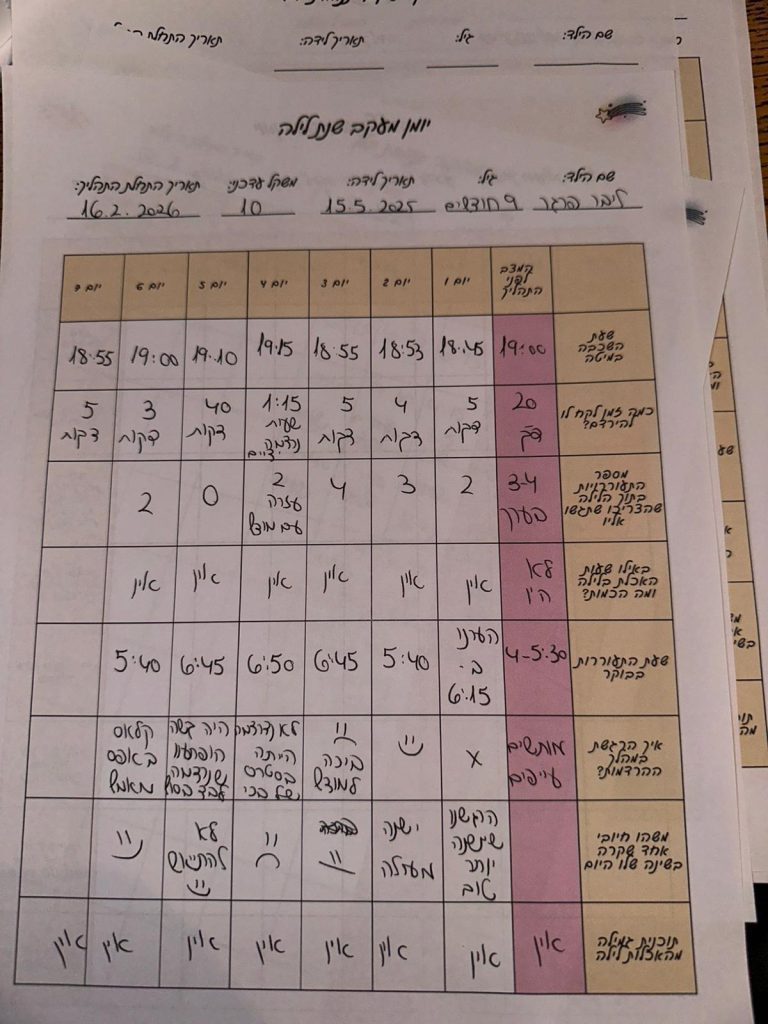 שם הילד:
גיל:
תאריך לידה:
תאריך התחלת
יומן מעקב שנת לילה
שם הילד: ליבר פרגר
גיל: 9 חודשים
תאריך לידה: 15.5.2025
משקל עדכני: 10
תאריך התחלת התהליך: 16.2.2026
המצב לפני התהליך
יום 1
יום 2
יום 3
יום 4
יום 5
יום 6
יום 7
שעת השכבה במיטה
19:00
18:45
18:53
18:55
19:15
19:10
19:00
18:55
כמה זמן לקח לו להירדם?
20 דק'
5 דקות
4 דקות
5 דקות
1:15 שעות נרדמה
40 דקות
3 דקות
5 דקות
מספר התעורבויות בתוך הלילה שהצריכו שתגשו אליו
3-4 בערך
2
3
4
2 עזרה עם מוצץ
0
2
באילו שעות האכלת בלילה ומה הכמות?
לא היו
אין
אין
אין
אין
אין
אין
שעת התעוררות בבוקר
4-5:30
הערנו ב- 6:15
5:40
6:45
6:50
6:45
5:40
איך הרגשת במהלך ההרדמות?
מותשים עייפים
x
בכיה למוצץ
לא נרדמה הייתה בסטרס של בכי
היה קשה הופתענו שנרדמה
קלאס באופס מאמץ
משהו חיובי אחד שקרה בשינה שלו היום
הרגשנו שישנה יותר טוב
ישנה מעולה
לא להתייאש
תוכנית גמילה מהאכלות לילה
אין
אין
אין
אין
אין
אין
אין
אין